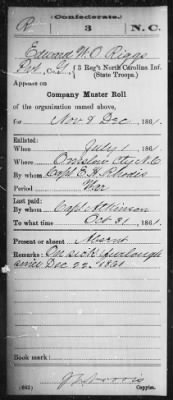 (Confederate.)
R 3 N.C.
Edward W. O. Riggs
Pvt., Co. G, 3 Reg't North Carolina Inf.
(State Troops.)
Appears on
Company Muster Roll
of the organization named above,
for Nov & Dec, 1861.
Enlisted:
When July 1, 1861.
Where Onslow Cty N.C.
By whom Capt. E. H. Rhodes
Period War
Last paid:
By whom Capt Atkinson
To what time Oct 31, 1861.
Present or absent Absent
Remarks: On sick furlough
since Dec 22, 1861
Book mark:
(642)
Copyist.